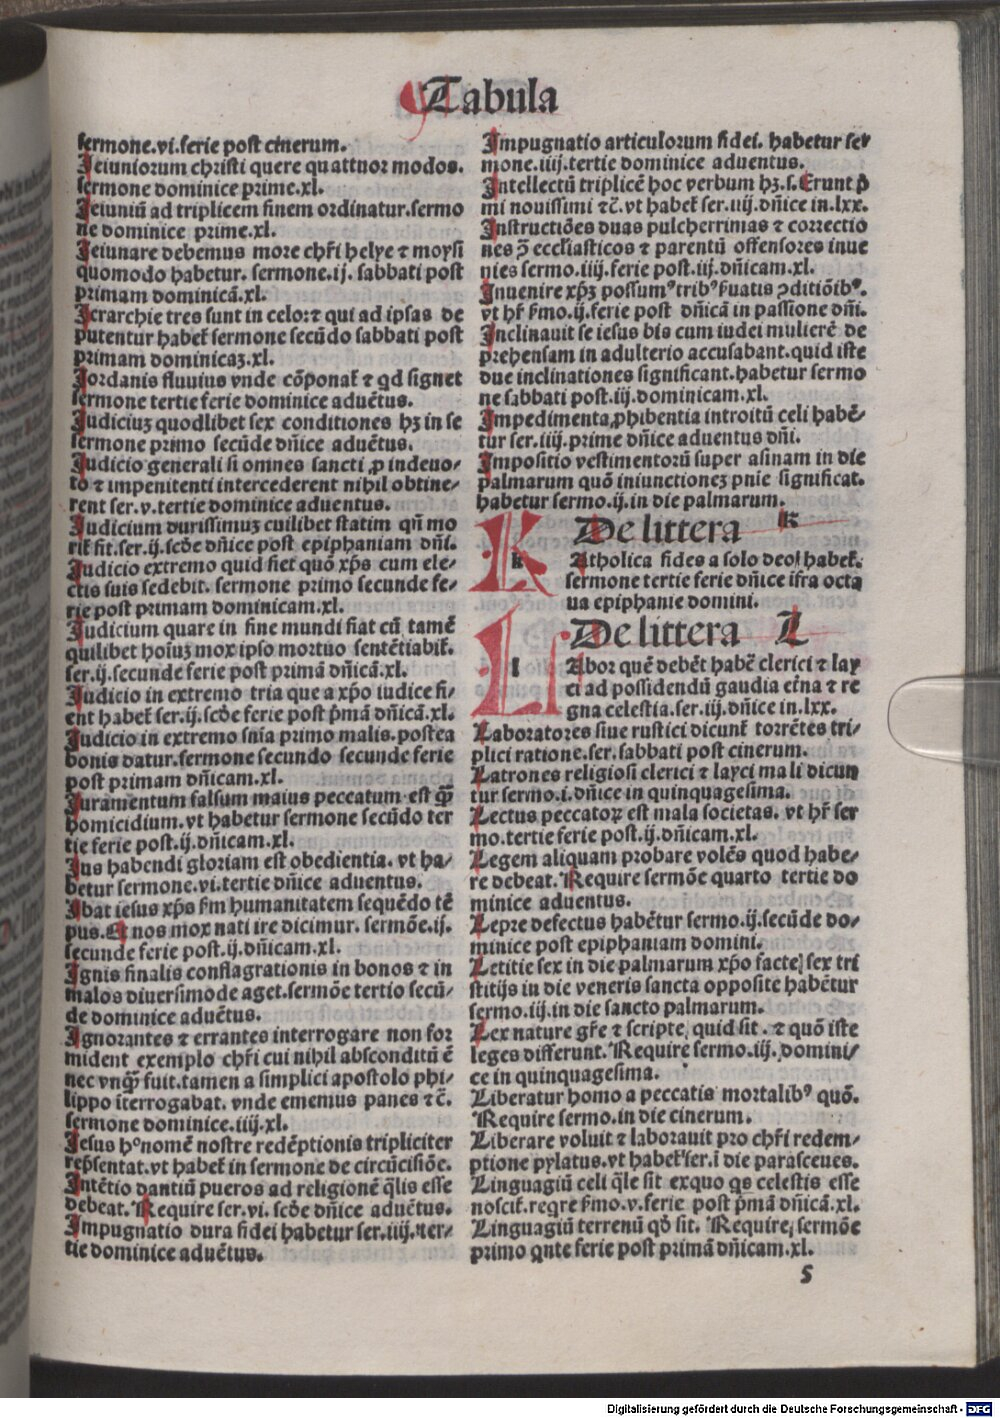 Tabula
sermone.vi.ferie post cinerum.
Ieiuniorum christi quere quattuor modos.
sermone dominice prime.xl.
Ieiuniū ad triplicem finem ordinatur.sermo
ne dominice prime.xl.
Ieiunare debemus more chr̄i helye ⁊ moysi
quomodo habetur. sermone.ij. sabbati post
primam dominicā.xl.
Ierarchie tres sunt in celo:⁊ qui ad ipsas de
putentur habeť sermone secūdo sabbati post
primam dominicaʒ.xl.
Iordanis fluuius vnde cōponať ⁊ qd signet
sermone tertie ferie dominice aduētus.
Iudiciuʒ quodlibet sex conditiones hʒ in se
sermone primo secūde dn̄ice aduētus.
Iudicio generali si omnes sancti ꝓ indeuo/
to ⁊ impenitenti intercederent nihil obtine/
rent ser.v.tertie dominice aduentus.
Iudicium durissimuʒ cuilibet statim qn̄ mo
riť fit.ser.ij.scd̄e dn̄ice post epiphaniam dn̄i.
Iudicio extremo quid fiet quō xp̄s cum ele/
ctis suis sedebit. sermone primo secunde fe/
rie post primam dominicam.xl.
Iudicium quare in fine mundi fiat cū tamē
quilibet hoīuʒ mox ipso mortuo sentētiabiť.
ser.ij.secunde ferie post primā dn̄icā.xl.
Iudicio in extremo tria que a xp̄o iudice fi/
ent habeť ser.ij.scd̄e ferie post p̄mā dn̄icā.xl.
Iudicio in extremo sn̄ia primo malis.postea
bonis datur.sermone secundo secunde ferie
post primam dn̄icam.xl.
Iuramentum falsum maius peccatum est q̄ꝫ
homicidium.vt habetur sermone secūdo ter
tie ferie post.ij.dn̄icam.xl.
Ius habendi gloriam est obedientia. vt ha/
betur sermone.vi.tertie dn̄ice aduentus.
Ibat iesus xp̄s s̄m humanitatem sequēdo tē
pus.Et nos mox nati ire dicimur. sermōe.ij.
secunde ferie post.ij.dn̄icam.xl.
Ignis finalis conflagrationis in bonos ⁊ in
malos diuersimode aget.sermōe tertio secū/
de dominice aduētus.
Ignorantes ⁊ errantes interrogare non for
mident exemplo chr̄i cui nihil absconditū ē
nec vnq̄ꝫ fuit.tamen a simplici apostolo phi/
lippo īterrogabat. vnde ememus panes ⁊c̄.
sermone dominice.iiij.xl.
Iesus hº nomē nostre redēptionis tripliciter
rep̄sentat.vt habeť in sermone de circūcisiōe.
Intētio dantiū pueros ad religionē q̄lis esse
debeat. Require ser.vi. scd̄e dn̄ice aduētus.
Impugnatio dura fidei habetur ser.iiij.ter/
tie dominice aduētus.
Impugnatio articulorum fidei. habetur ser
mone.iiij.tertie dominice aduentus.
Intellectū triplicē hoc verbum hʒ.s.Erunt p̄
mi nouissimi ⁊c̄.vt habeť ser.iij.dn̄ice in.lxx.
Instructiōes duas pulcherrimas ⁊ correctio
nes ꝯ̄ ecclīasticos ⁊ parentū offensores inue
nies sermo.iiij.ferie post.iij.dn̄icam.xl.
Inuenire xp̄ʒ possumꝰ tribꝰ s̄uatis ꝯditiōibꝰ.
vt hr̄ s̄mo.ij.ferie post dn̄icā in passione dn̄i.
Inclinauit se iesus bis cum iudei mulierē de
prehensam in adulterio accusabant.quid iste
due inclinationes significant.habetur sermo
ne sabbati post.iij.dominicam.xl.
Impedimenta ꝓhibentia introitū celi habē/
tur ser.iiij.prime dn̄ice aduentus dn̄i.
Impositio vestimentorū super asinam in die
palmarum quō iniunctioneʒ pnīe significat.
habetur sermo.ij.in die palmarum.
De littera K
K k Atholica fides a solo deo habeť.
sermone tertie ferie dn̄ice īfra octa
ua epiphanie domini.
De littera L
L l Abor quē debēt habē clerici ⁊ lay
ci ad possidendū gaudia et̄na ⁊ re
gna celestia.ser.iij.dn̄ice in.lxx.
Laboratores siue rustici dicunť torrētes tri/
plici ratione.ser.sabbati post cinerum.
Latrones religiosi clerici ⁊ layci mali dicun
tur sermo.i.dn̄ice in quinquagesima.
Lectus peccatoꝝ est mala societas. vt hr̄ ser
mo.tertie ferie post.ij.dn̄icam.xl.
Legem aliquam probare volēs quod habe/
re debeat. Require sermōe quarto tertie do
minice aduentus.
Lepre defectus habētur sermo.ij.secūde do/
minice post epiphaniam domini.
Letitie sex in die palmarum xp̄o facte sex tri
stitijs in die veneris sancta opposite habētur
sermo.iij.in die sancto palmarum.
Lex nature gr̄e ⁊ scripte quid sit . ⁊ quō iste
leges differunt. Require sermo.iij. domini/
ce in quinquagesima.
Liberatur homo a peccatis mortalibꝰ quō.
Require sermo.in die cinerum.
Liberare voluit ⁊ laborauit pro chr̄i redem/
ptione pylatus.vt habeť ser.ī die parasceues.
Linguagiū celi q̄le sit exquo qs celestis esse
nosciť.reqre s̄mo.v.ferie post p̄mā dn̄icā.xl.
Linguagiū terrenū qd̄ sit. Require sermōe
primo qnte ferie post primā dn̄icam.xl.
5
Digitalisierung gefördert durch die Deutsche Forschungsgemeinschaft - DFG